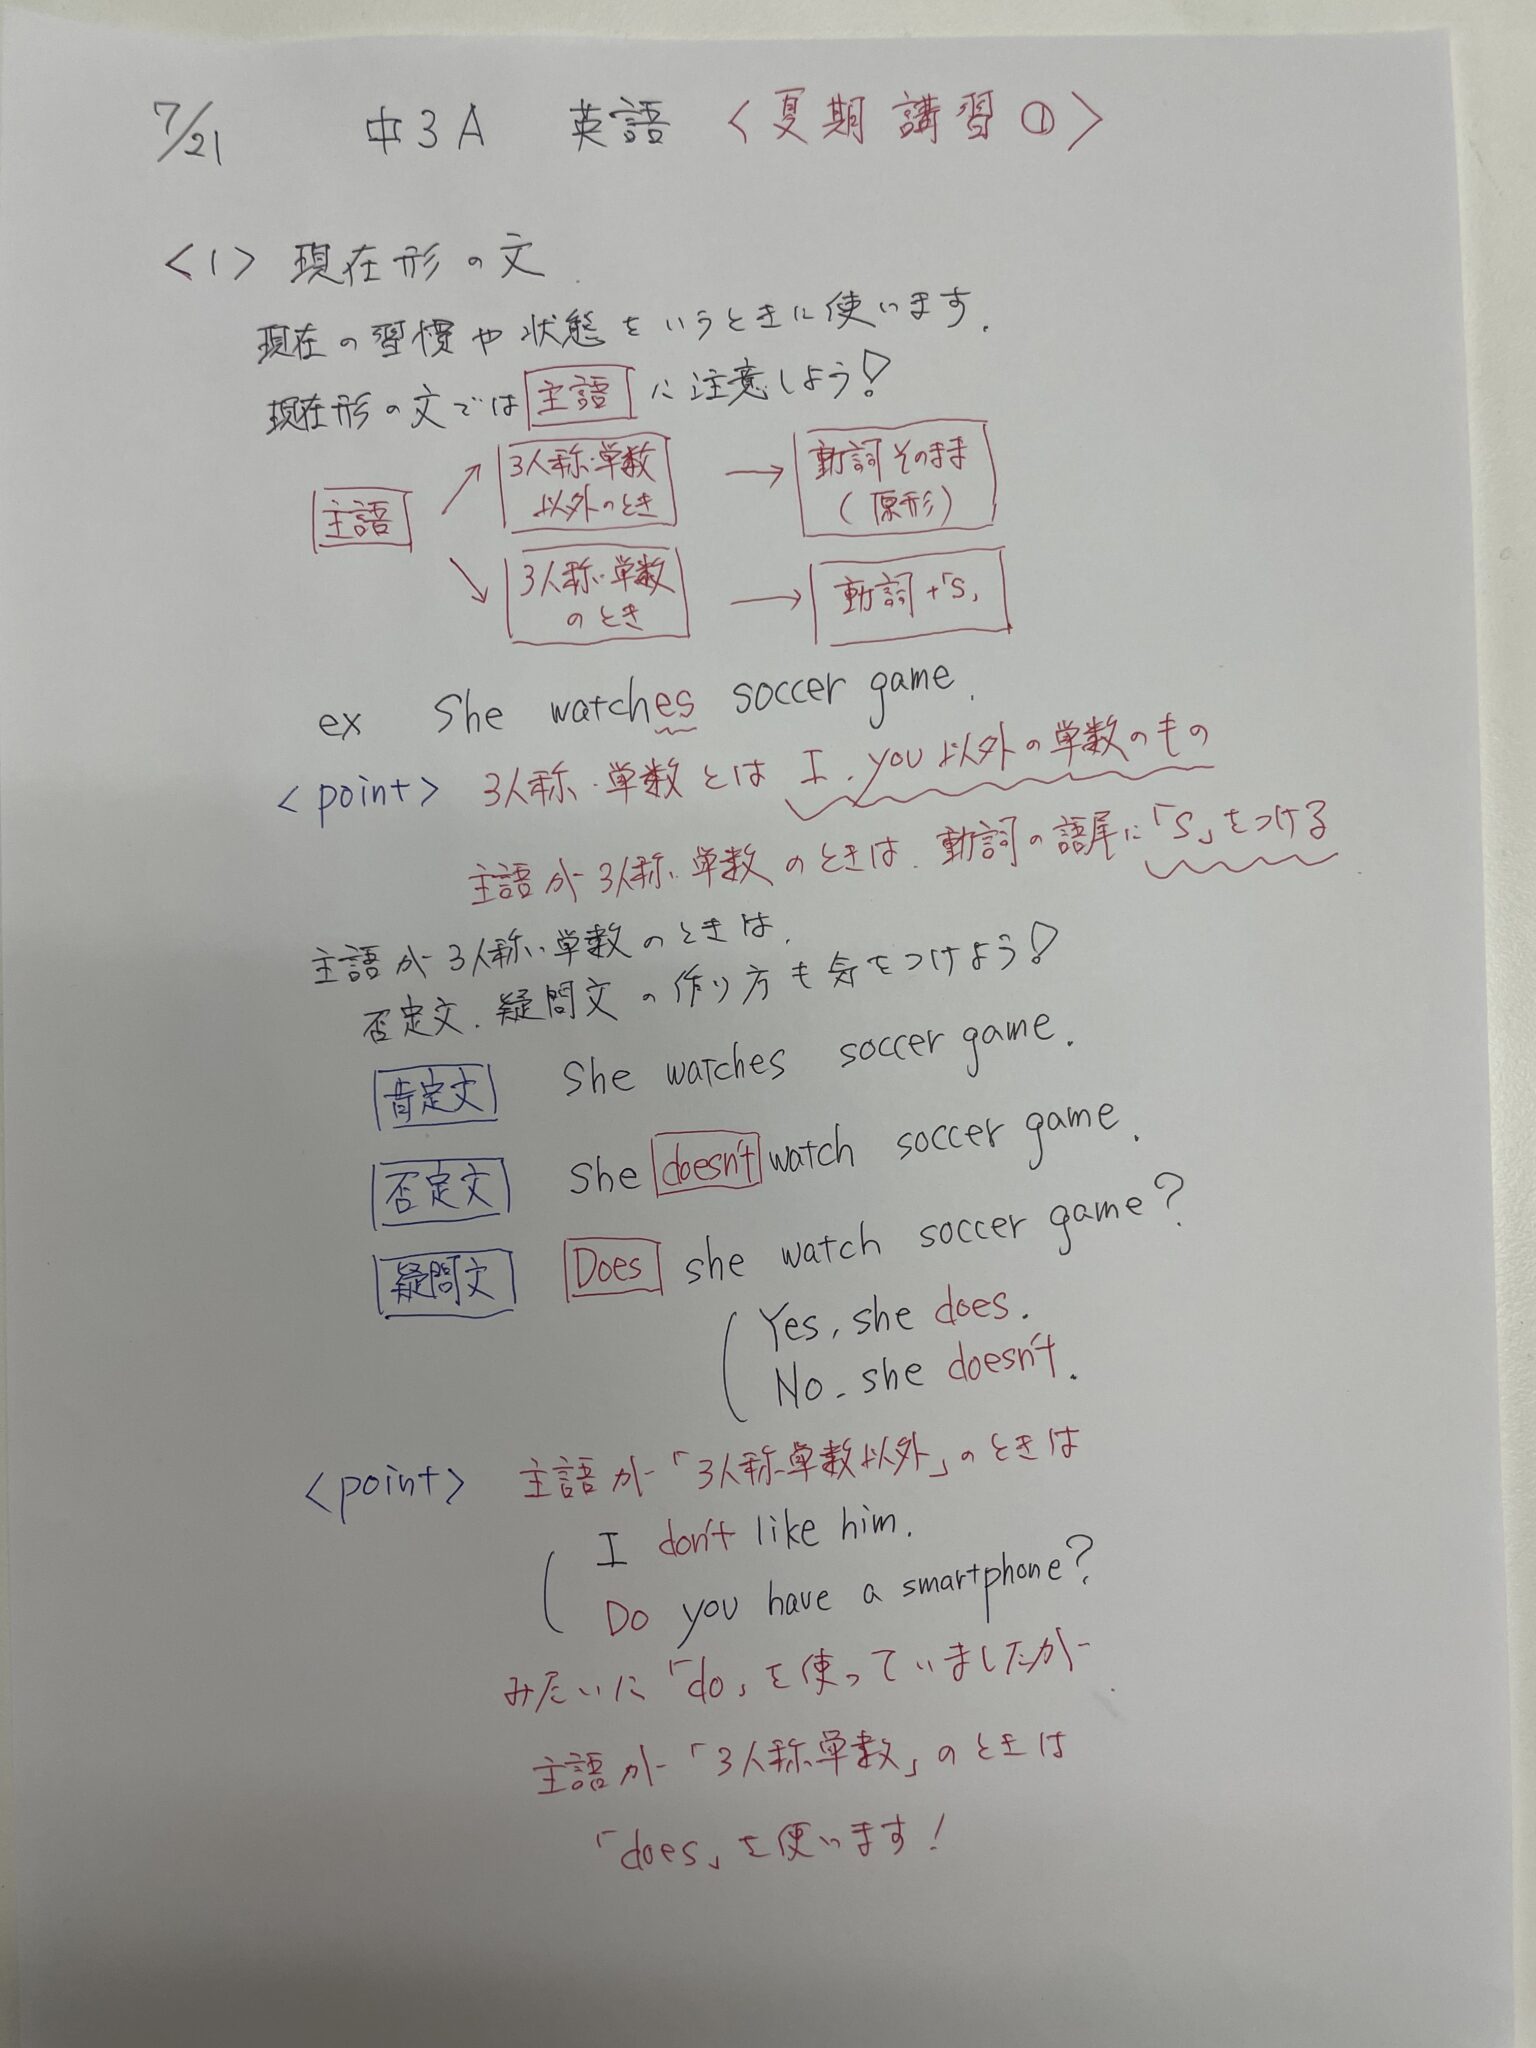 7/21 中3A 英語 <夏期講習①>
<1> 現在形の文
現在の習慣や状態をいうときに使います.
現在形の文では 主語 に注意しよう!
主語 ↗ 3人称・単数以外のとき → 動詞そのまま(原形)
↘ 3人称・単数のとき → 動詞+「s」
ex She watches soccer game.
<point> 3人称・単数とは I, you以外の単数のもの
主語が3人称・単数のときは, 動詞の語尾に「s」をつける
主語が3人称・単数のときは,
否定文, 疑問文の作り方も気をつけよう!
肯定文 She watches soccer game.
否定文 She doesn't watch soccer game.
疑問文 Does she watch soccer game?
Yes, she does.
No, she doesn't.
<point> 主語が「3人称・単数以外」のときは
I don't like him.
Do you have a smartphone?
みたいに「do」を使っていましたが
主語が「3人称・単数」のときは
「does」を使います!